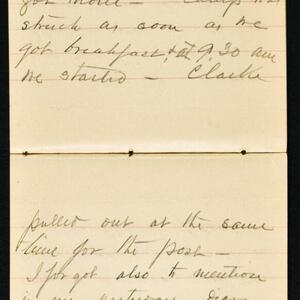 got more – Camp was
struck as soon as we
got breakfast & at 9.30 am
we started – Clarke
pulled out at the same
time for the post –
I forgot also to mention
in my